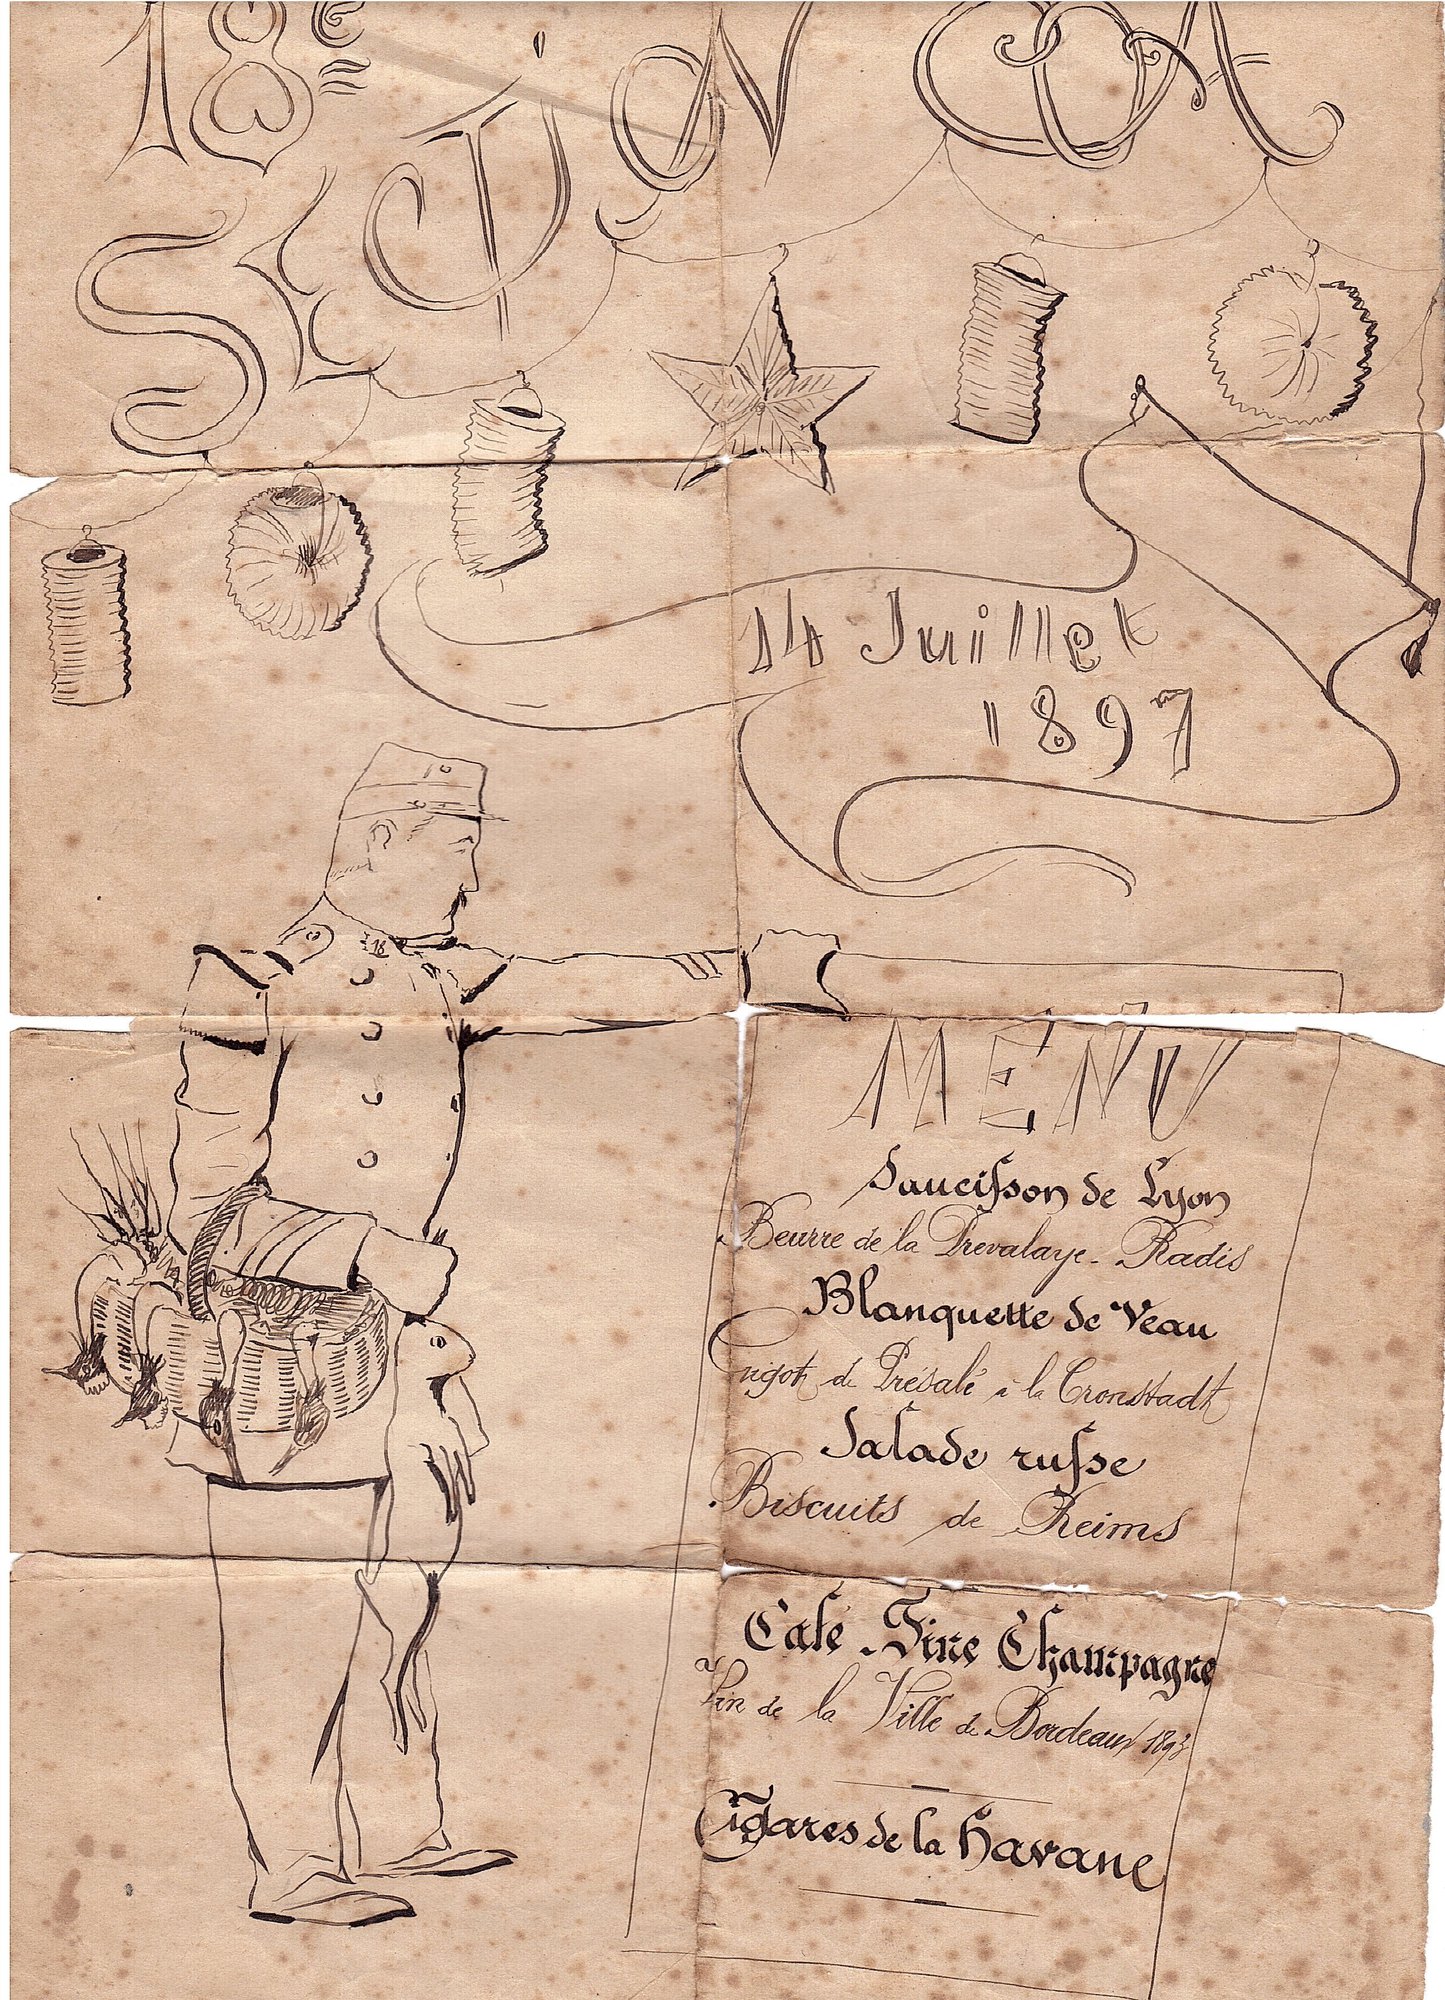 18e
SECTION COA
14 Juillet
1897
18
MENU
Saucisson de Lyon
Beurre de la Prévalaye - Radis
Blanquette de Veau
Gigot de Présalé à la Cronstadt
Salade russe
Biscuits de Reims
Café Fine Champagne
Vin de la Ville de Bordeaux 1893
Cigares de la Havane